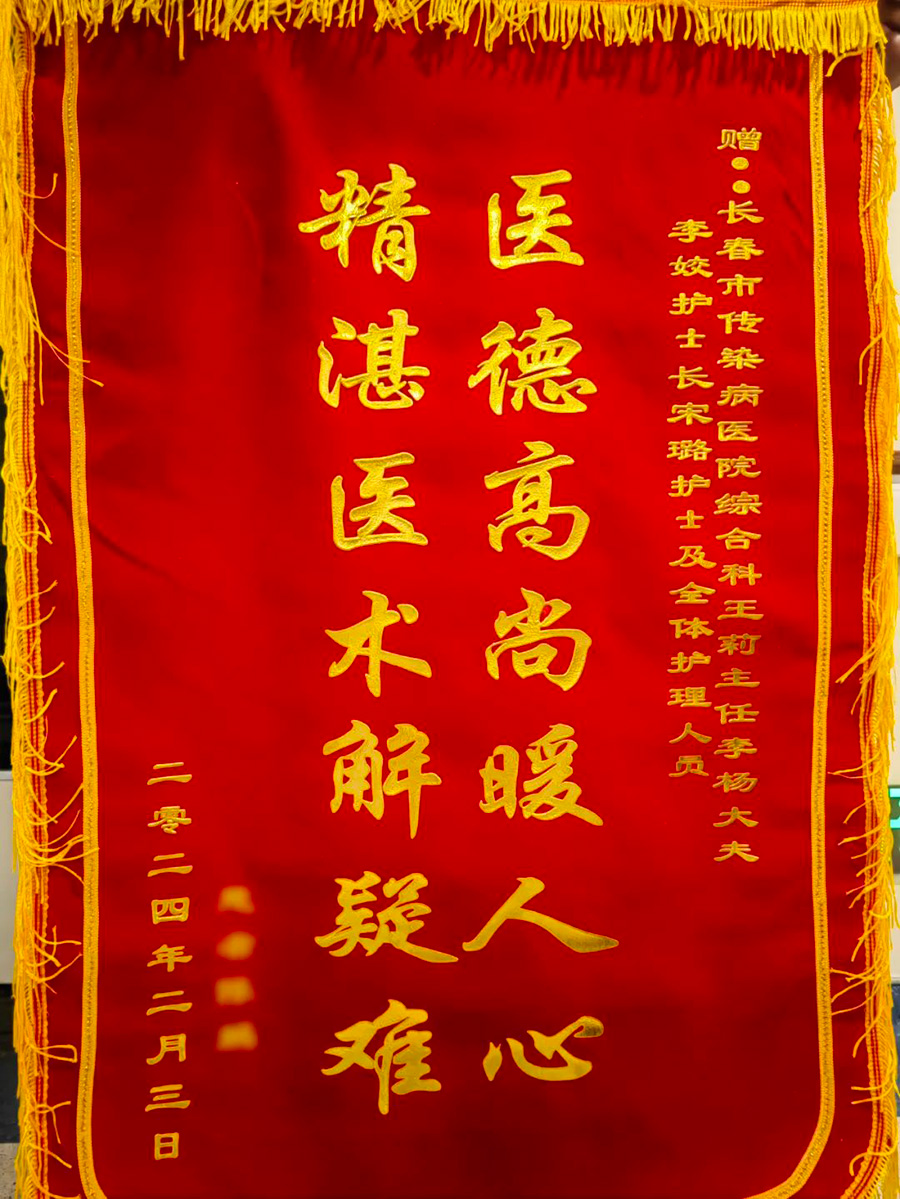 赠：长春市传染病医院综合科王莉主任李杨大夫
李姣护士长宋璐护士及全体护理人员
医德高尚暖人心
精湛医术解疑难
二零二四年二月三日